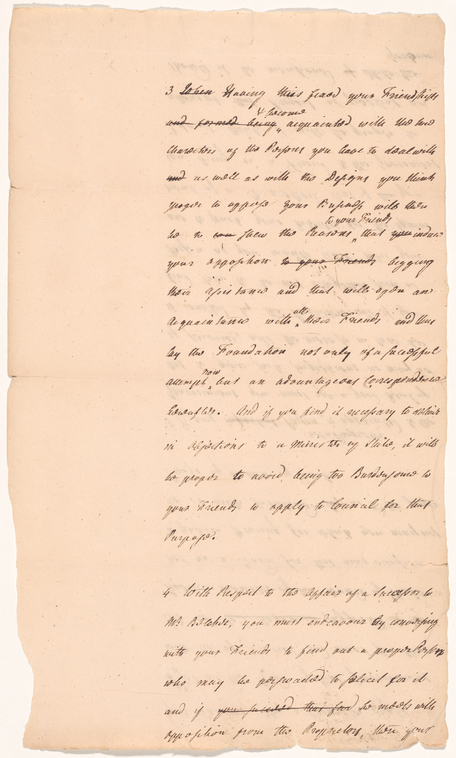 3 When Having thus fixed your Friendships
and formed being & become acquainted with the true
Characters of the Persons you have to deal with
and as well as with the Designs you think
proper to oppose your Business will then
be to shew the Reasons to your Friends that induce
your opposition to your Friends begging
their assistance and that will open an
Acquaintance with their Friends and thus
lay the Foundation not only of a successful
attempt now, but an advantageous Correspondence
hereafter. And if you find it necessary to
in objections to a Minister of State, it will
be proper to avoid being too Burdensome to
your Friends to apply to Council for that
Purpose.
4 With Respect to the affair of a Successor to
Mr you must endeavour by conversing
with your Friends to find out a proper Person
who may be perswaded to solicit for it
and if you succeed thus far he meets with
opposition from the Proprietors, then your